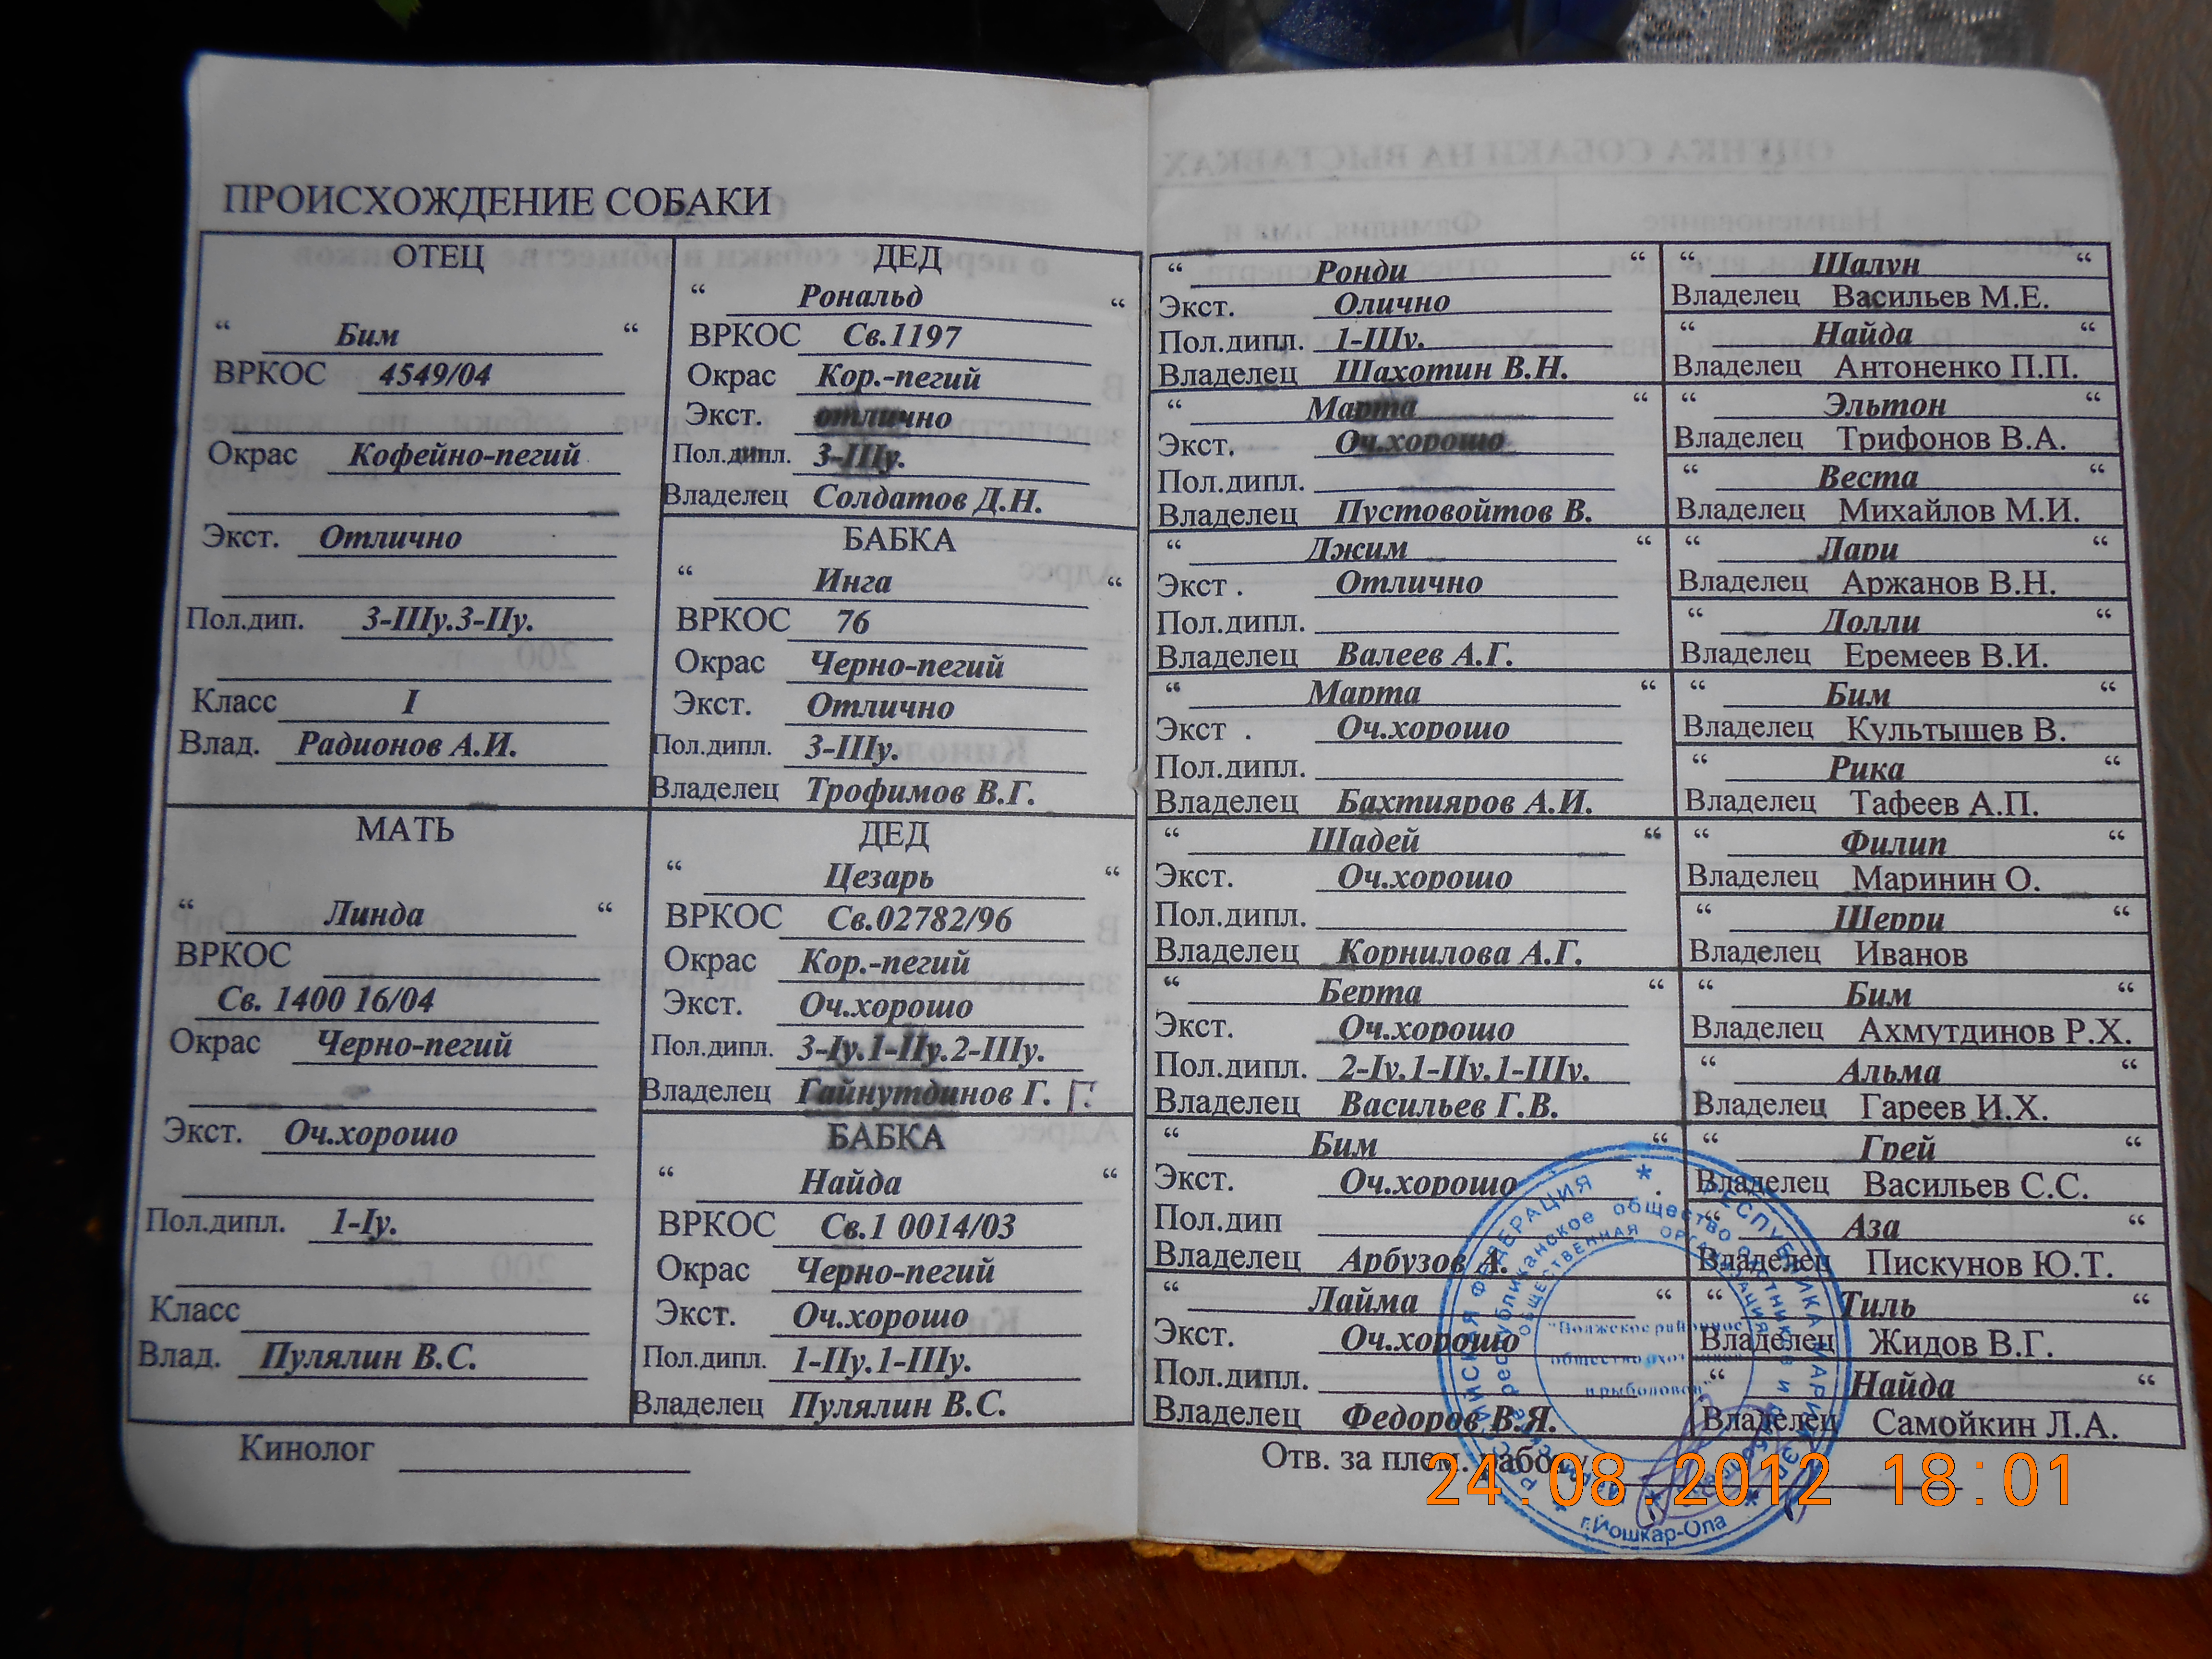 ПРОИСХОЖДЕНИЕ СОБАКИ
ОТЕЦ
“ Бим “
ВРКОС 4549/04
Окрас Кофейно-пегий
Экст. Отлично
Пол.дип. 3-IIIу.3-IIу.
Класс I
Влад. Радионов А.И.
МАТЬ
“ Линда “
ВРКОС
Св. 1400 16/04
Окрас Черно-пегий
Экст. Оч.хорошо
Пол.дипл. 1-Iу.
Класс
Влад. Пулялин В.С.
Кинолог
ДЕД
“ Рональд “
ВРКОС Св.1197
Окрас Кор.-пегий
Экст. отлично
Пол.дипл. 3-IIIу.
Владелец Солдатов Д.Н.
БАБКА
“ Инга “
ВРКОС 76
Окрас Черно-пегий
Экст. Отлично
Пол.дипл. 3-IIIу.
Владелец Трофимов В.Г.
ДЕД
“ Цезарь “
ВРКОС Св.02782/96
Окрас Кор.-пегий
Экст. Оч.хорошо
Пол.дипл. 3-Iу.1-IIу.2-IIIу.
Владелец Гайнутдинов Г. Г.
БАБКА
“ Найда “
ВРКОС Св.1 0014/03
Окрас Черно-пегий
Экст. Оч.хорошо
Пол.дипл. 1-IIу.1-IIIу.
Владелец Пулялин В.С.
“ Ронди “
Экст. Олично
Пол.дипл. 1-IIIу.
Владелец Шахотин В.Н.
“ Марта “
Экст. Оч.хорошо
Пол.дипл.
Владелец Пустовойтов В.
“ Джим “
Экст . Отлично
Пол.дипл.
Владелец Валеев А.Г.
“ Марта “
Экст . Оч.хорошо
Пол.дипл.
Владелец Бахтияров А.И.
“ Шадей “
Экст. Оч.хорошо
Пол.дипл.
Владелец Корнилова А.Г.
“ Берта “
Экст. Оч.хорошо
Пол.дипл. 2-Iу.1-IIу.1-IIIу.
Владелец Васильев Г.В.
“ Бим “
Экст. Оч.хорошо .
Пол.дип
Владелец Арбузов А.
“ Лайма “
Экст. Оч.хорошо
Пол.дипл.
Владелец Федоров В.Я.
“ Шалун “
Владелец Васильев М.Е.
“ Найда “
Владелец Антоненко П.П.
“ Эльтон “
Владелец Трифонов В.А.
“ Веста “
Владелец Михайлов М.И.
“ Лари “
Владелец Аржанов В.Н.
“ Долли “
Владелец Еремеев В.И.
“ Бим “
Владелец Культышев В.
“ Рика “
Владелец Тафеев А.П.
“ Филип “
Владелец Маринин О.
“ Шерри “
Владелец Иванов
“ Бим “
Владелец Ахмутдинов Р.Х.
“ Альма “
Владелец Гареев И.Х.
“ Грей “
Владелец Васильев С.С.
“ Аза “
Владелец Пискунов Ю.Т.
“ Тиль “
Владелец Жидов В.Г.
“ Найда “
Владелец Самойкин Л.А.
Отв. за плем. работу
РОССИЙСКАЯ ФЕДЕРАЦИЯ * РЕСПУБЛИКА МАРИЙ ЭЛ *
республиканское общество охотников и
ОБЩЕСТВЕННАЯ ОРГАНИЗАЦИЯ
"Волжское районное
общество охотников
и рыболовов"
г.Йошкар-Ола
24.08.2012 18:01